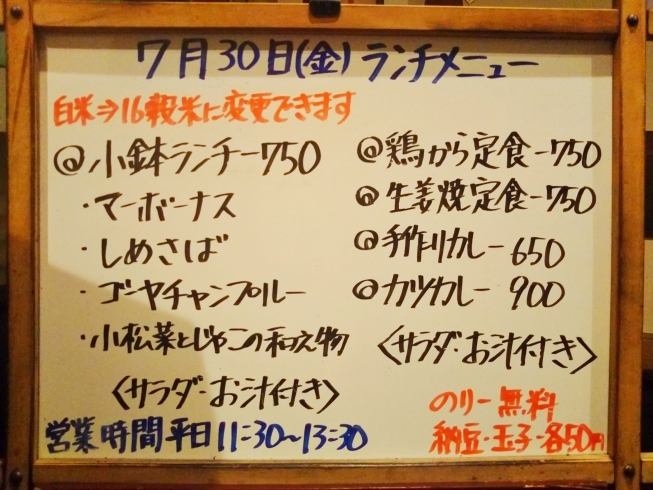 7月30日(金)ランチメニュー
白米⇒16穀米に変更できます
@小鉢ランチー750
・マーボーナス
・しめさば
・ゴーヤチャンプルー
・小松菜とじゃこの和え物
〈サラダ・お汁付き〉
@鶏から定食-750
@生姜焼定食-750
@手作りカレー 650
@カツカレー 900
〈サラダ・お汁付き〉
のりー無料
納豆・玉子-各50円
営業時間平日11:30~13:30